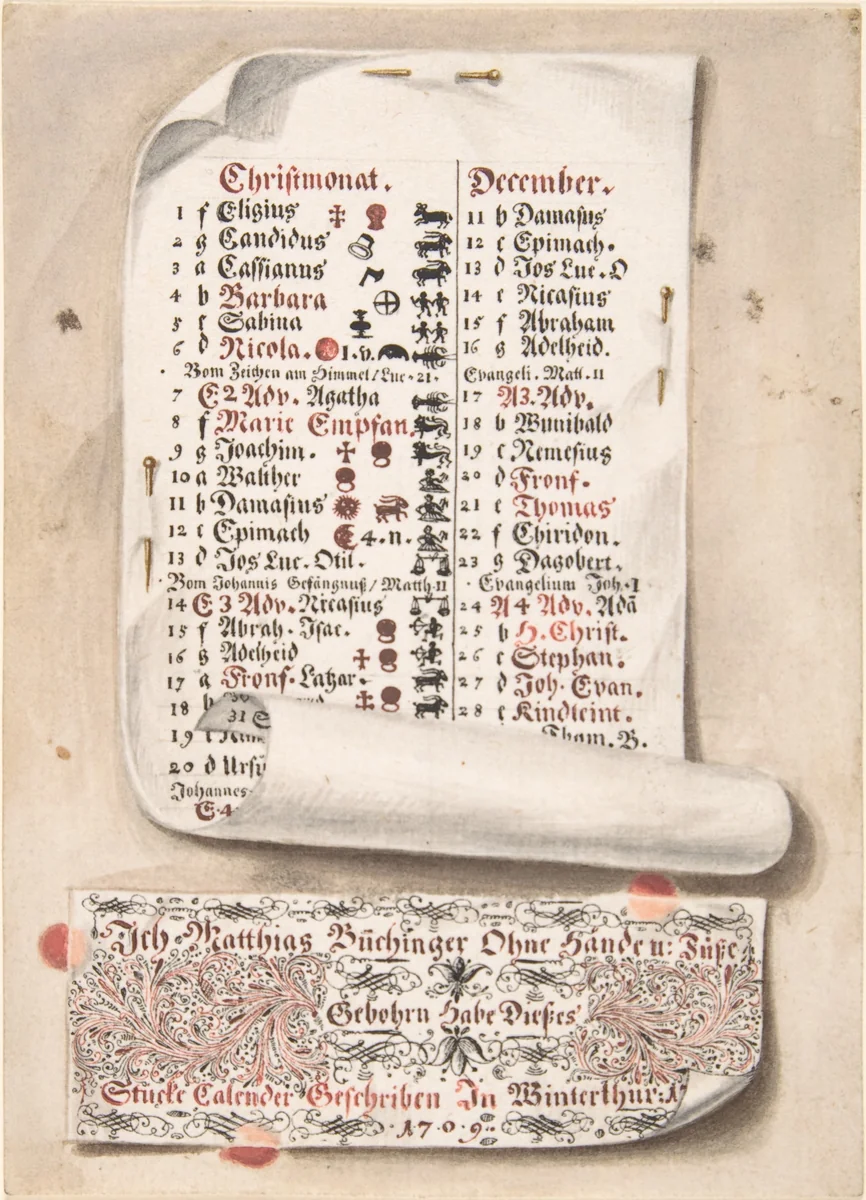 Christmonat.
1 f Eligius
2 g Candidus
3 a Cassianus
4 b Barbara
5 c Sabina
6 d Nicola. 1.v.
Vom Zeichen am Himmel/Luc. 21.
7 E 2 Adv. Agatha
8 f Marie Empfan.
9 g Joachim.
10 a Walther
11 b Damasius
12 c Epimach 4.n.
13 d Jos Luc. Otil.
Vom Johannis Gefängnuß/Matth 11
14 E 3 Adv. Nicasius
15 f Abrah. Isac.
16 g Adelheid
17 a Fronf. Latzar.
18 b
31 S
19 c
20 d Ursi
Johannes
E. 4
December.
11 b Damasus
12 c Epimach.
13 d Jos Luc. O
14 e Nicasius
15 f Abraham
16 g Adelheid.
Evangeli. Matt. 11
17 A 3. Adv.
18 b Wunibald
19 c Nemesius
20 d Fronf.
21 e Thomas
22 f Chiridon.
23 g Dagobert.
Evangelium Joh. 1
24 A 4 Adv. Adā
25 b H. Christ.
26 c Stephan.
27 d Joh. Evan.
28 e Kindleint.
Tham. B.
Ich Matthias Büchinger Ohne Hände u: Füße
Gebohrn Habe Dießes
Stucke Calender Geschriben In Winterthur. 17
1709